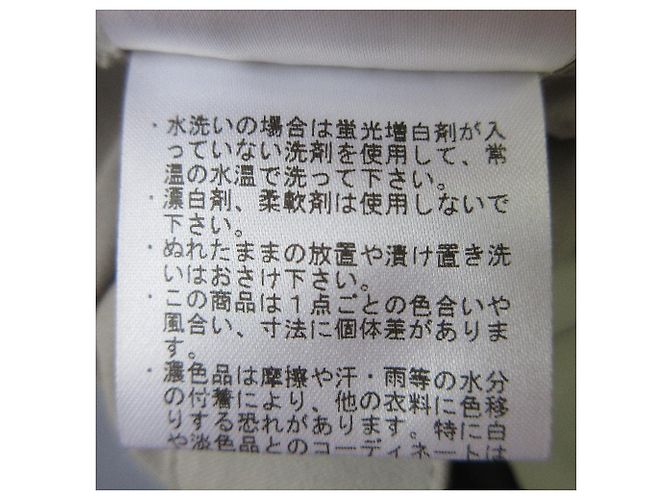 ・水洗いの場合は蛍光増白剤が入
っていない洗剤を使用して、常
温の水温で洗って下さい。
・漂白剤、柔軟剤は使用しないで
下さい。
・ぬれたままの放置や漬け置き洗
いはおさけ下さい。
・この商品は1点ごとの色合いや
風合い、寸法に個体差がありま
す。
・濃色品は摩擦や汗・雨等の水分
の付着により、他の衣料に色移
りする恐れがあります。特に白
や淡色品とのコーディネートは